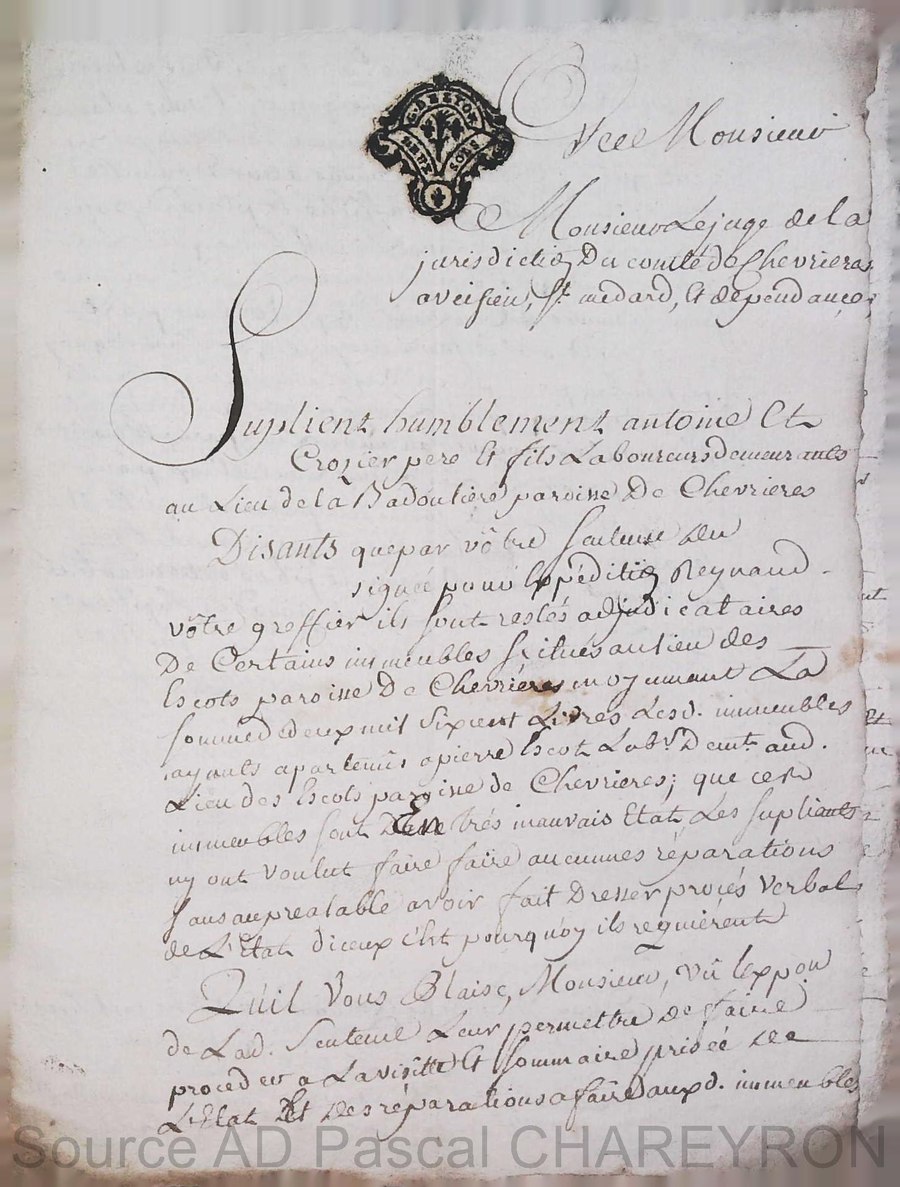 G. DE LYON
DEUX SOLS
Monsieur
Monsieur Le juge de la
jurisdiction Du comté de Chevrieres
aveisieu, St. medard, Et dependances
Suplient humblement antoine Et
Crozier pere Et fils Laboureurs demeurants
au Lieu de la Badouliere paroisse De Chevrieres
Disants que par vôtre Sentence du
signée pour Expédition Reynaud
vôtre greffier ils sont restés adjudicataires
De Certains immeubles scitués au lieu des
Escots paroisse De Chevriéres moyennant La
somme de deux mil Sixcent Livres Lesd. immeubles
ayants apartenus a pierre Escot Labr. Demt. aud.
Lieu des Escots paroisse de Chevrieres; que ces
immeubles sont En trés mauvais Etat Les supliants
ny ont voulut faire faire aucunnes réparations
sans au prealable avoir fait Dresser procés verbal
de L'Etat diceux C'Est pourquoy ils requiérent
Qu'il Vous Plaise, Monsieur, vû
de Lad. Sentence Leur permettre de faire
proceder a La visitte Et Sommaire prisée de
L'Etat Et des réparations a faire auxd. immeubles
Source AD Pascal CHAREYRON